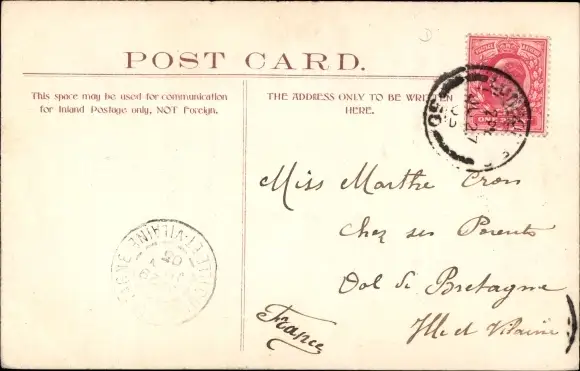 POST CARD.
This space may be used for communication
for Inland Postage only, NOT Foreign.
THE ADDRESS ONLY TO BE WRITTEN
HERE.
Miss Marthe Cron
Chez ses Parents
Dol de Bretagne
Ille et Vilaine
France
ET-VILAINE